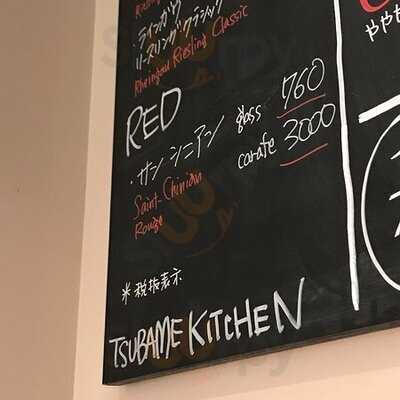 ・ラインガウ
リースリング クラシック
Rheingau Riesling Classic
RED
・サン シニアン glass 760
carafe 3000
Saint-Chinian
Rouge
※税抜表示
TSUBAME KITCHEN